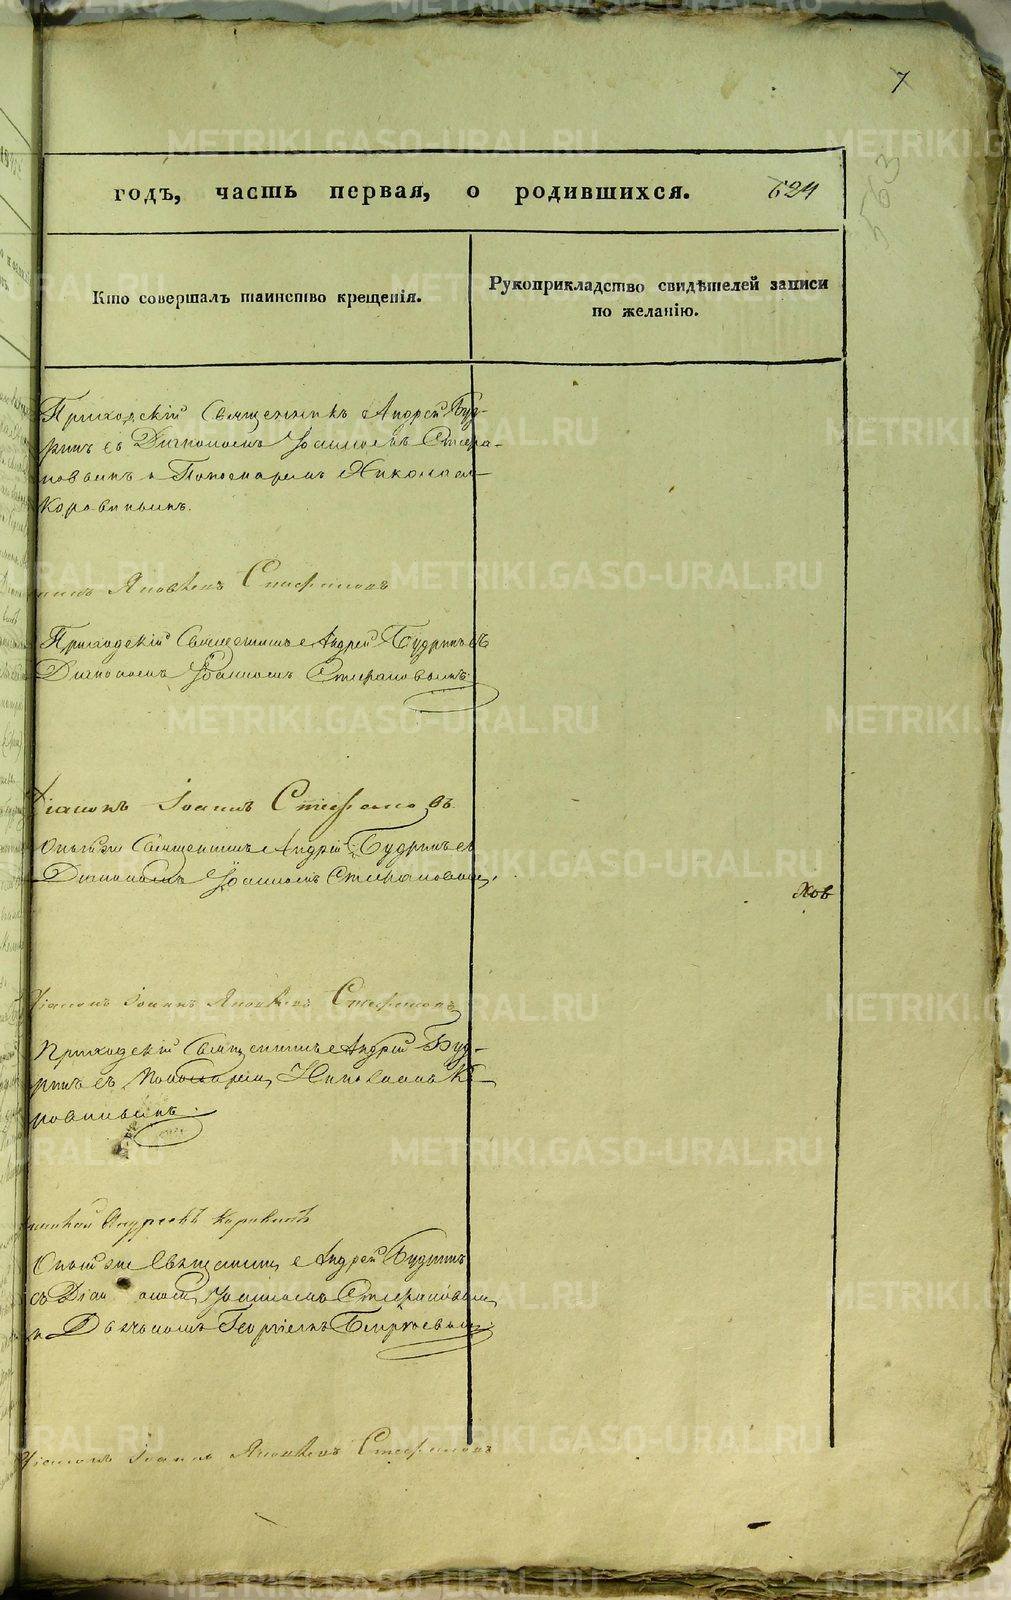 7
563
годъ, часть первая, о родившихся. 624
Кто совершалъ таинство крещенія.
Рукоприкладство свидѣтелей записи
по желанію.
Приходскій Священникъ Андрей Буд-
ринъ съ Діакономъ Іоанномъ Стефа-
новымъ и Пономаремъ Николаем
Коровинымъ.
Яковлевъ Стефановъ
Приходскій Священникъ Андрей Будринъ съ
Діакономъ Іоанномъ Стефановымъ.
Діаконъ Іоаннъ Стефановъ
Онътже Священникъ Андрей Будринъ съ
Діакономъ Іоанномъ Стефановым.
Діаконъ Іоаннъ Яковлевъ Стефановъ
Приходскій Священникъ Андрей Буд-
ринъ съ Пономарем Николаемъ Ко-
ровинымъ.
Николай Андреевъ Коровинъ
Онътже Священник Андрей Будринъ
съ Діакономъ Іоанномъ Стефановым
и Дьячкомъ Георгіемъ
Діаконъ Іоаннъ Яковлевъ Стефановъ
METRIKI.GASO-URAL.RU